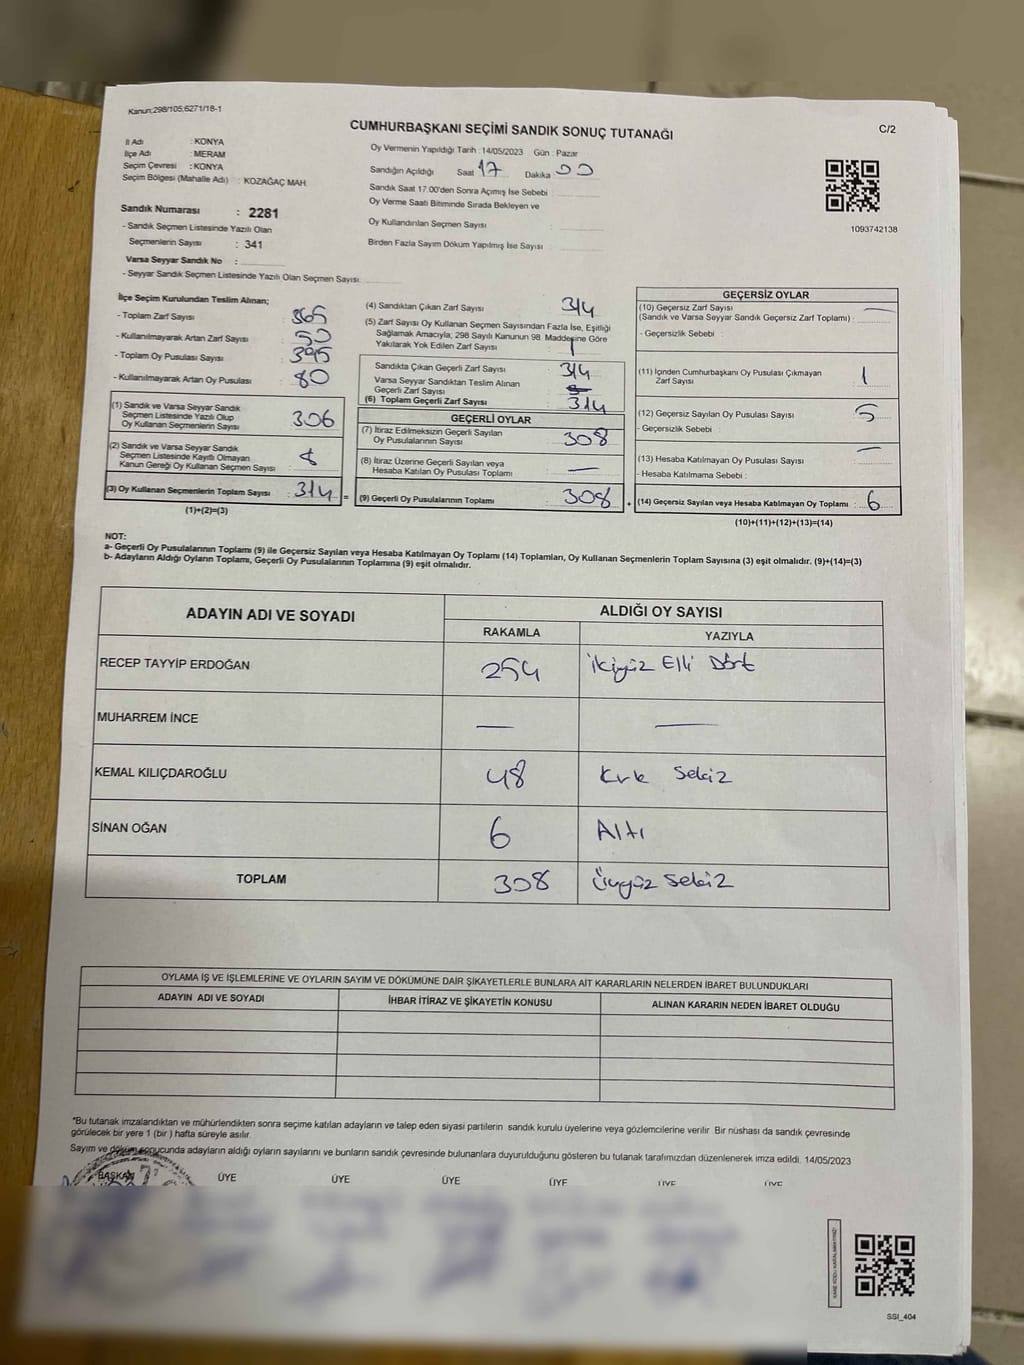 Kanun:298/105;6271/18-1
CUMHURBAŞKANI SEÇİMİ SANDIK SONUÇ TUTANAĞI
C/2
İl Adı : KONYA
İlçe Adı : MERAM
Seçim Çevresi : KONYA
Seçim Bölgesi (Mahalle Adı) : KOZAĞAÇ MAH.
Oy Vermenin Yapıldığı Tarih : 14/05/2023 Gün : Pazar
Sandığın Açıldığı Saat 17 Dakika 00
Sandık Saat 17.00'den Sonra Açılmış İse Sebebi :
Oy Verme Saati Bitiminde Sırada Bekleyen ve
Oy Kullandırılan Seçmen Sayısı :
Birden Fazla Sayım Döküm Yapılmış İse Sayısı :
1093742138
Sandık Numarası : 2281
- Sandık Seçmen Listesinde Yazılı Olan
Seçmenlerin Sayısı : 341
Varsa Seyyar Sandık No :
- Seyyar Sandık Seçmen Listesinde Yazılı Olan Seçmen Sayısı:
İlçe Seçim Kurulundan Teslim Alınan;
- Toplam Zarf Sayısı : 365
- Kullanılmayarak Artan Zarf Sayısı : 50
- Toplam Oy Pusulası Sayısı : 395
- Kullanılmayarak Artan Oy Pusulası : 80
(1) Sandık ve Varsa Seyyar Sandık
Seçmen Listesinde Yazılı Olup
Oy Kullanan Seçmenlerin Sayısı : 306
(2) Sandık ve Varsa Seyyar Sandık
Seçmen Listesinde Kayıtlı Olmayan
Kanun Gereği Oy Kullanan Seçmen Sayısı : 8
(3) Oy Kullanan Seçmenlerin Toplam Sayısı : 314 =
(1)+(2)=(3)
(4) Sandıktan Çıkan Zarf Sayısı : 314
(5) Zarf Sayısı Oy Kullanan Seçmen Sayısından Fazla İse, Eşitliği
Sağlamak Amacıyla, 298 Sayılı Kanunun 98. Maddesine Göre
Yakılarak Yok Edilen Zarf Sayısı : 1
Sandıkta Çıkan Geçerli Zarf Sayısı : 314
Varsa Seyyar Sandıktan Teslim Alınan
Geçerli Zarf Sayısı :
(6) Toplam Geçerli Zarf Sayısı : 314
GEÇERLİ OYLAR
(7) İtiraz Edilmeksizin Geçerli Sayılan
Oy Pusulalarının Sayısı : 308
(8) İtiraz Üzerine Geçerli Sayılan veya
Hesaba Katılan Oy Pusulası Toplamı : —
(9) Geçerli Oy Pusulalarının Toplamı : 308 +
GEÇERSİZ OYLAR
(10) Geçersiz Zarf Sayısı
(Sandık ve Varsa Seyyar Sandık Geçersiz Zarf Toplamı) : —
- Geçersizlik Sebebi :
(11) İçinden Cumhurbaşkanı Oy Pusulası Çıkmayan
Zarf Sayısı : 1
(12) Geçersiz Sayılan Oy Pusulası Sayısı : 5
- Geçersizlik Sebebi :
(13) Hesaba Katılmayan Oy Pusulası Sayısı : —
- Hesaba Katılmama Sebebi :
(14) Geçersiz Sayılan veya Hesaba Katılmayan Oy Toplamı : 6
(10)+(11)+(12)+(13)=(14)
NOT:
a- Geçerli Oy Pusulalarının Toplamı (9) ile Geçersiz Sayılan veya Hesaba Katılmayan Oy Toplamı (14) Toplamları, Oy Kullanan Seçmenlerin Toplam Sayısına (3) eşit olmalıdır. (9)+(14)=(3)
b- Adayların Aldığı Oyların Toplamı, Geçerli Oy Pusulalarının Toplamına (9) eşit olmalıdır.
ADAYIN ADI VE SOYADI ALDIĞI OY SAYISI
RAKAMLA YAZIYLA
RECEP TAYYİP ERDOĞAN 254 İkiyüz Elli Dört
MUHARREM İNCE — —
KEMAL KILIÇDAROĞLU 48 Kırk Sekiz
SİNAN OĞAN 6 Altı
TOPLAM 308 Üçyüz Sekiz
OYLAMA İŞ VE İŞLEMLERİNE VE OYLARIN SAYIM VE DÖKÜMÜNE DAİR ŞİKAYETLERLE BUNLARA AİT KARARLARIN NELERDEN İBARET BULUNDUKLARI
ADAYIN ADI VE SOYADI İHBAR İTİRAZ VE ŞİKAYETİN KONUSU ALINAN KARARIN NEDEN İBARET OLDUĞU
*Bu tutanak imzalandıktan ve mühürlendikten sonra seçime katılan adayların ve talep eden siyasi partilerin sandık kurulu üyelerine veya gözlemcilerine verilir. Bir nüshası da sandık çevresinde
görülecek bir yere 1 (bir) hafta süreyle asılır.
Sayım ve döküm sonucunda adayların aldığı oyların sayılarını ve bunların sandık çevresinde bulunanlara duyurulduğunu gösteren bu tutanak tarafımızdan düzenlenerek imza edildi. 14/05/2023
BAŞKAN ÜYE ÜYE ÜYE ÜYE ÜYE ÜYE
SSI_404